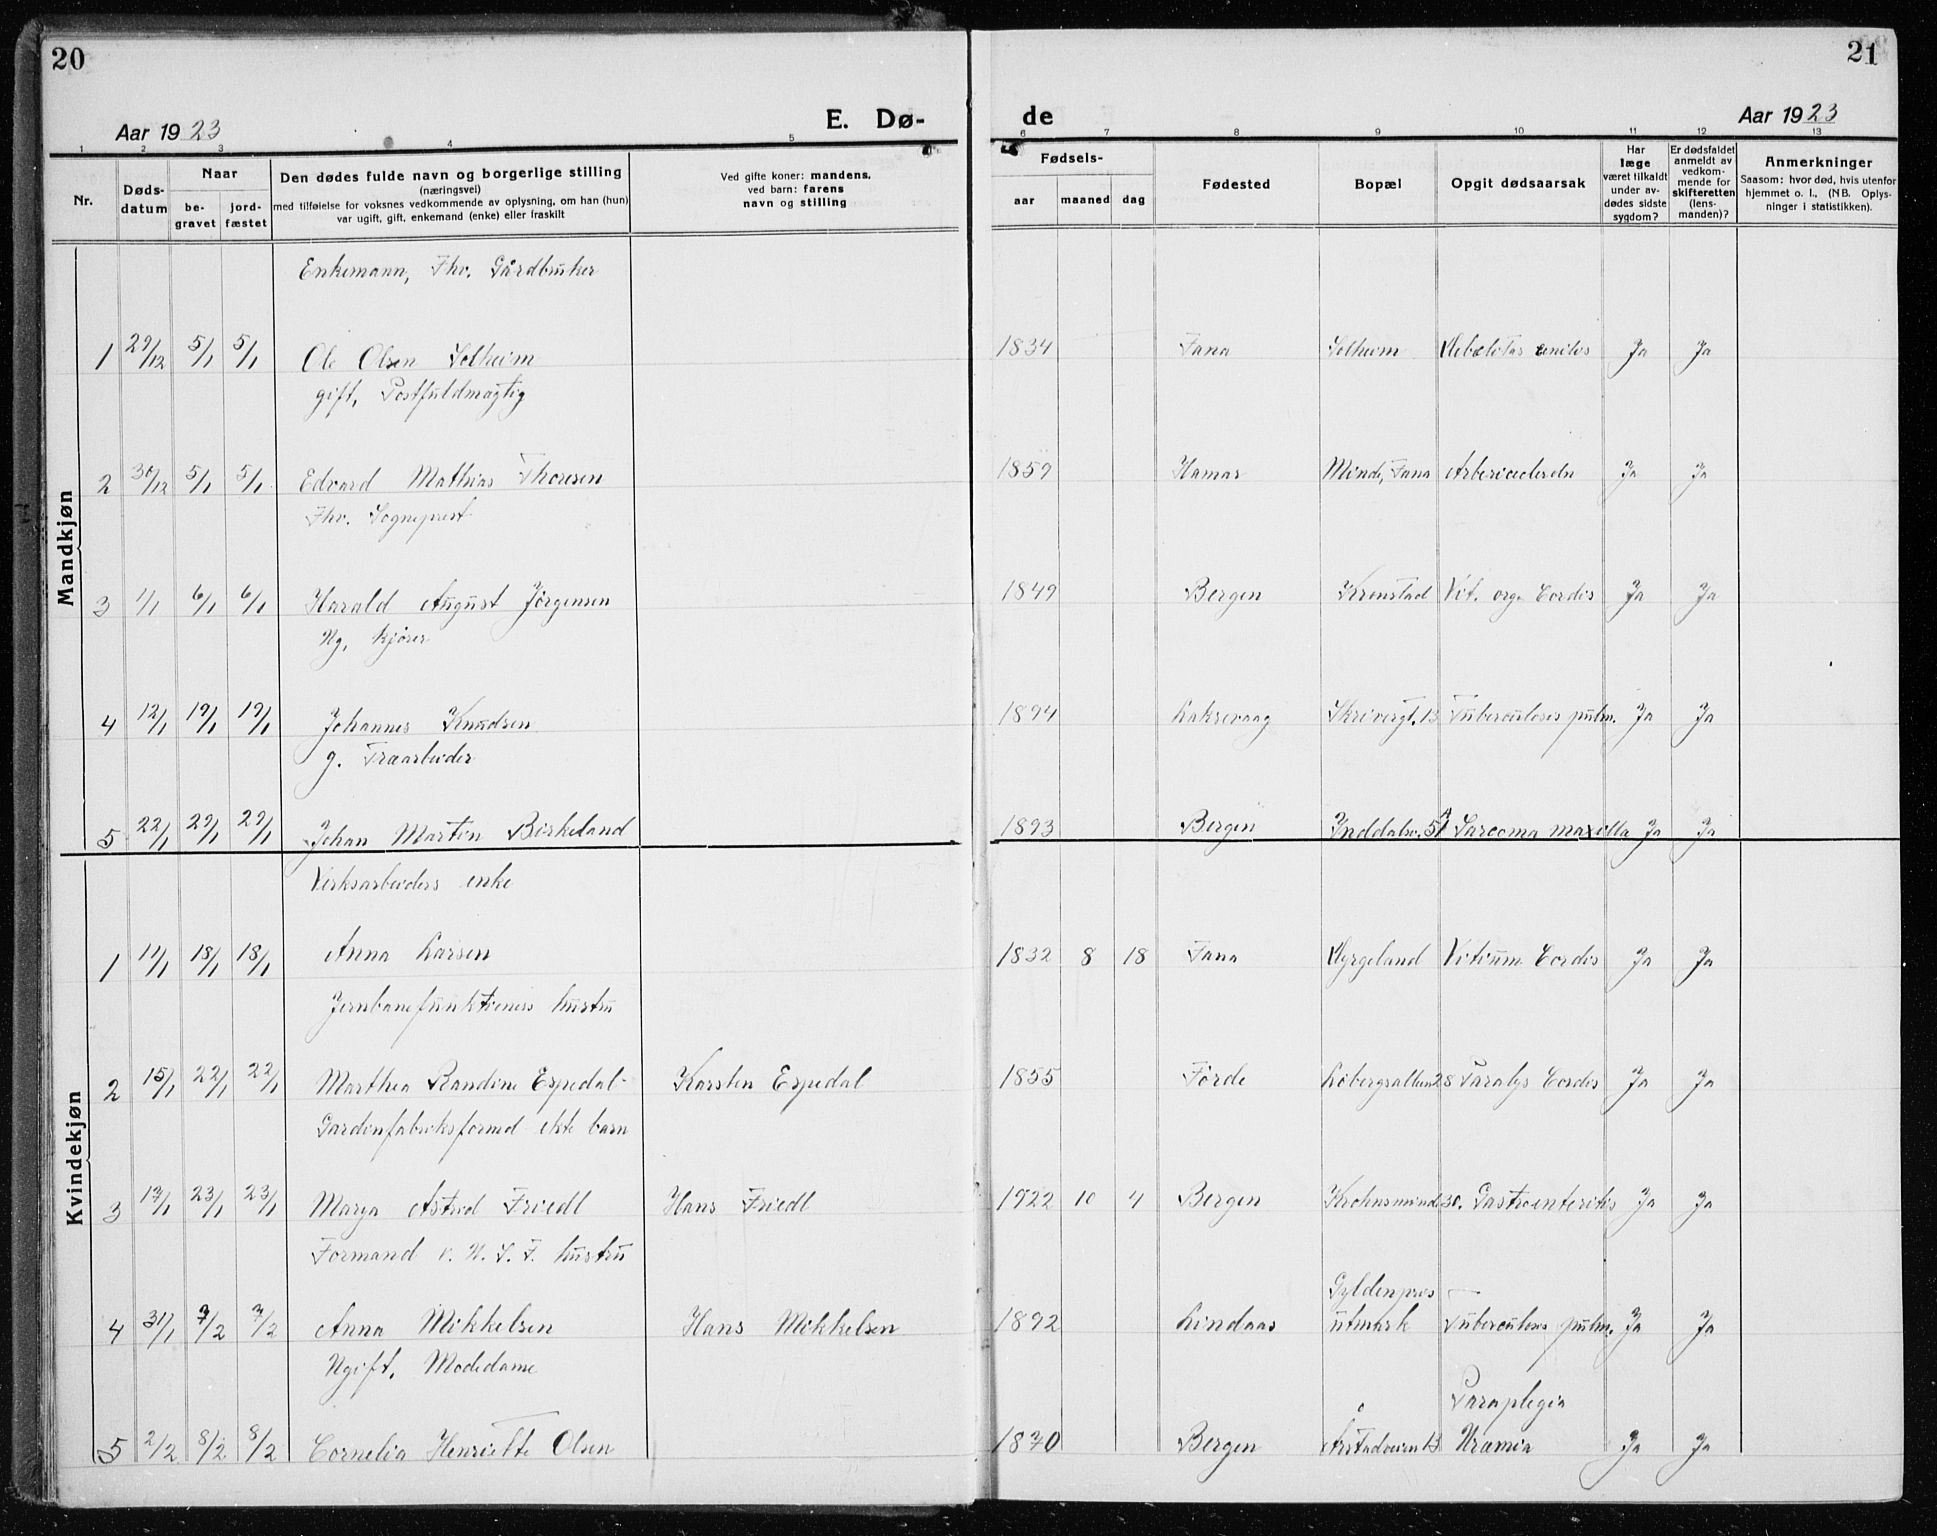 20
21
Aar 1923
E. Dø-
de
Aar 1923
1 2 3 4 5 6 7 8 9 10 11 12 13
Nr.
Døds-
datum
Naar
be-
gravet
jord-
fæstet
Den dødes fulde navn og borgerlige stilling
(næringsvei)
med tilføielse for voksnes vedkommende av oplysning, om han (hun)
var ugift, gift, enkemand (enke) eller fraskilt
Ved gifte koner: mandens,
ved barn: farens
navn og stilling
Fødsels-
aar maaned dag
Fødested
Bopæl
Opgit dødsaarsak
Har
læge
været tilkaldt
under av-
dødes sidste
sygdom?
Er dødsfaldet
anmeldt av
vedkom-
mende for
skifteretten
(lens-
manden)?
Anmerkninger
Saasom: hvor død, hvis utenfor
hjemmet o. l., (NB. Oplys-
ninger i statistikken).
Mandkjøn
Enkemann, Fhv. Gårdbruker
1 29/12 5/1 5/1 Ole Olsen Solheim 1834 Fana Solheim Debilitas senilis Ja Ja
gift, Postfuldmægtig
2 30/12 5/1 5/1 Edvard Mathias Thoresen 1859 Hamar Minde, Fana Ja Ja
Fhv. Sogneprest
3 1/1 6/1 6/1 Harald August Jörgensen 1849 Bergen Kronstad Vit. org. Cordis Ja Ja
Ug, kjører
4 12/1 19/1 19/1 Johannes Knudsen 1894 Laksevaag Skrivergt. 13 Tuberculosis pulm. Ja Ja
g. Træarbeider
5 22/1 29/1 29/1 Johan Martin Birkeland 1893 Bergen Inddalsv. 51 Sarcoma maxilla Ja Ja
Kvindekjøn
Verksarbeiders enke
1 11/1 18/1 18/1 Anna Larsen 1832 8 18 Fana Dyrgeland Vitium Cordis Ja Ja
Jernbanefunktionærs hustru
2 15/1 22/1 22/1 Marthea Randine Espedal Karsten Espedal 1855 Förde Löbergsalleen 28 Paralys Cordis Ja Ja
Gardinfabriksformd ekte barn
3 17/1 23/1 23/1 Marya Astrid Friedl Hans Friedl 1922 10 4 Bergen Krohnsminde 30. Gastroenteritis Ja Ja
Formand v. N. S. F. hustru
Gyldenpris
4 31/1 7/2 7/2 Anna Mikkelsen Hans Mikkelsen 1892 Lindaas utmark Tuberculosis pulm. Ja Ja
Ugift, Modedame
Paraplegia
5 2/2 8/2 8/2 Cornelia Henriette Olsen 1870 Bergen Årstadveien 13 Uræmia Ja Ja